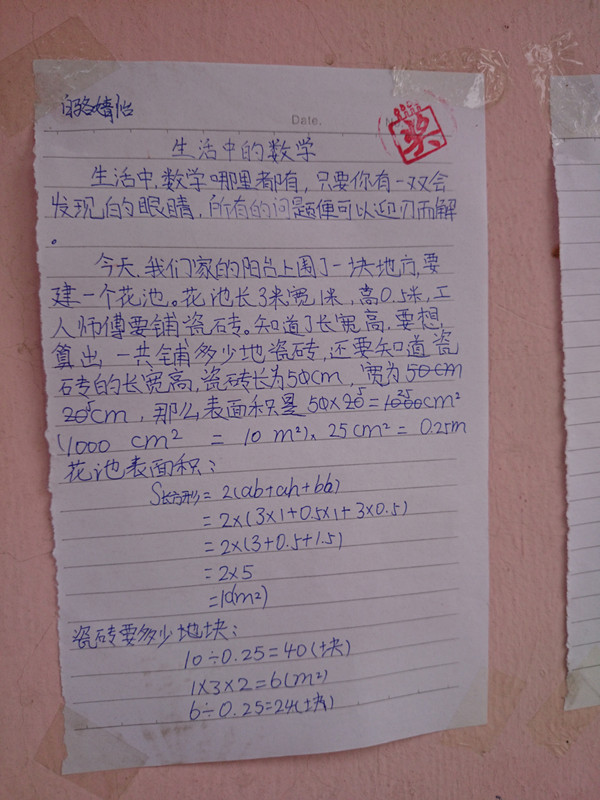 白骆婧怡
Date.
奖
生活中的数学
生活中,数学哪里都有,只要你有一双会
发现的眼睛,所有的问题便可以迎刃而解
。
今天,我们家的阳台上围了一块地方,要
建一个花池。花池长3米宽1米,高0.5米,工
人师傅要铺瓷砖。知道了长宽高,要想
算出,一共铺多少地瓷砖,还要知道瓷
砖的长宽高,瓷砖长为50cm,宽为50cm
5cm,那么表面积是50×5=25cm²
(1000 cm² = 10 m²)、25cm² = 0.25m
花池表面积:
S长方形=2(ab+ah+bh)
=2×(3×1+0.5×1+3×0.5)
=2×(3+0.5+1.5)
=2×5
=10(m²)
瓷砖要多少地块:
10÷0.25=40(块)
1×3×2=6(m²)
6÷0.25=24(块)